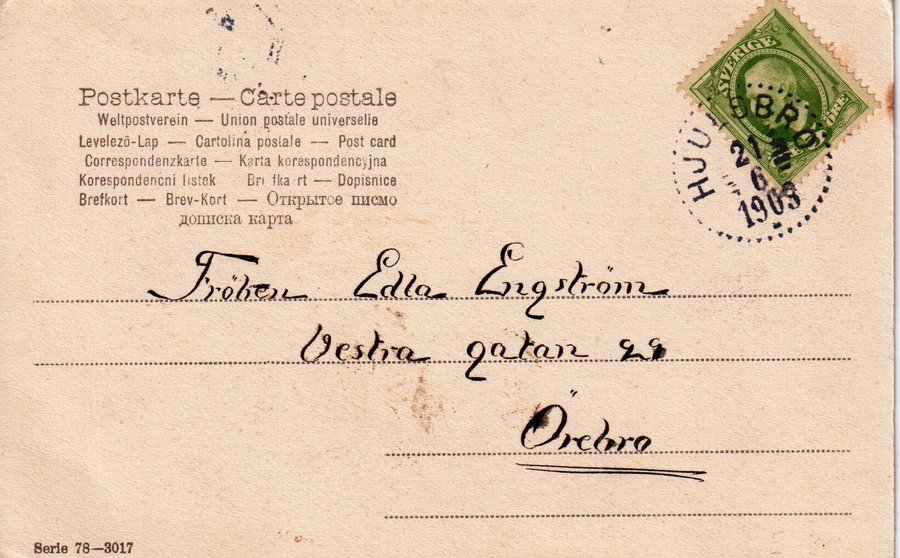 Postkarte — Carte postale
Weltpostverein — Union postale universelle
Levelező-Lap — Cartolina postale — Post card
Correspondenzkarte — Karta korespondencyjna
Korespondencni listek Brefkort — Dopisnice
Brefkort — Brev-Kort — Открытое письмо
дописка карта
SVERIGE
ÖRE
HJULSBRO
21
6
1903
Fröken Edla Engström
Vestra gatan 29
Örebro
Serie 78—3017